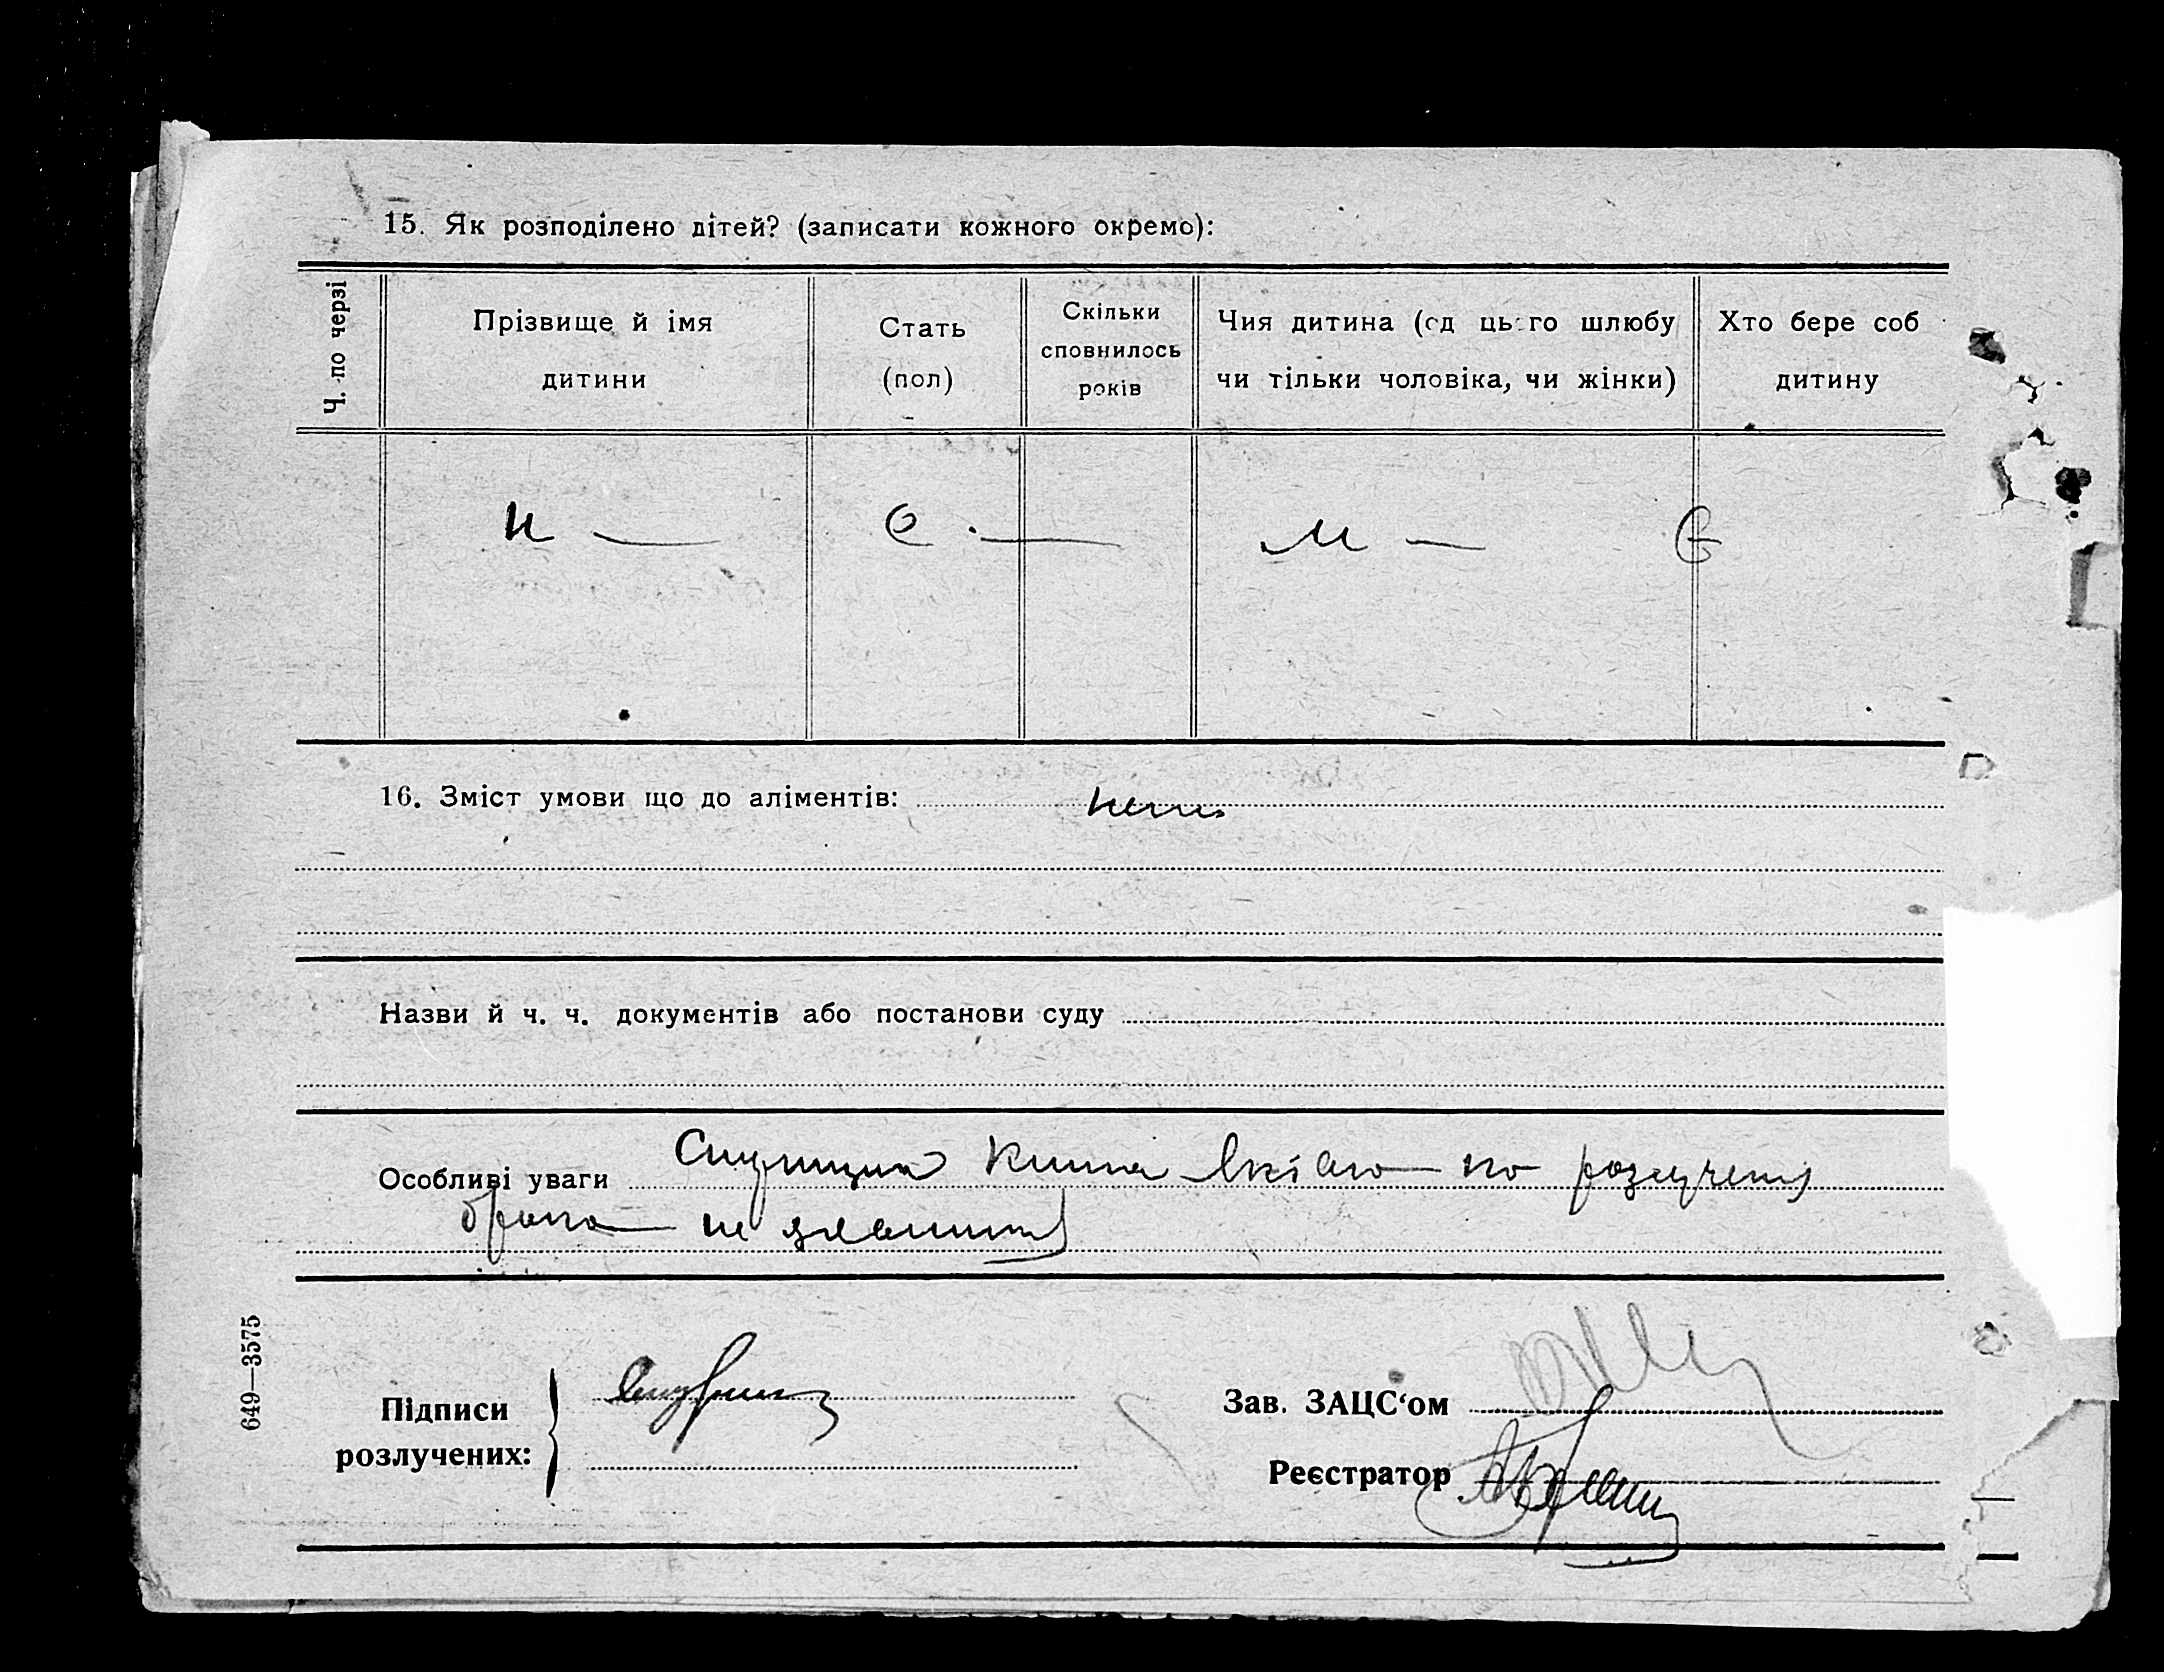 15. Як розподілено дітей? (записати кожного окремо):
Ч. по черзі
Прізвище й імя дитини
Стать (пол)
Скільки сповнилось років
Чия дитина (од цього шлюбу чи тільки чоловіка, чи жінки)
Хто бере соб дитину
н — е — м — є
16. Зміст умови що до аліментів: нет
Назви й ч. ч. документів або постанови суду
Особливі уваги по
брака не
649—3575
Підписи розлучених:
Зав. ЗАЦС‘ом
Реєстратор